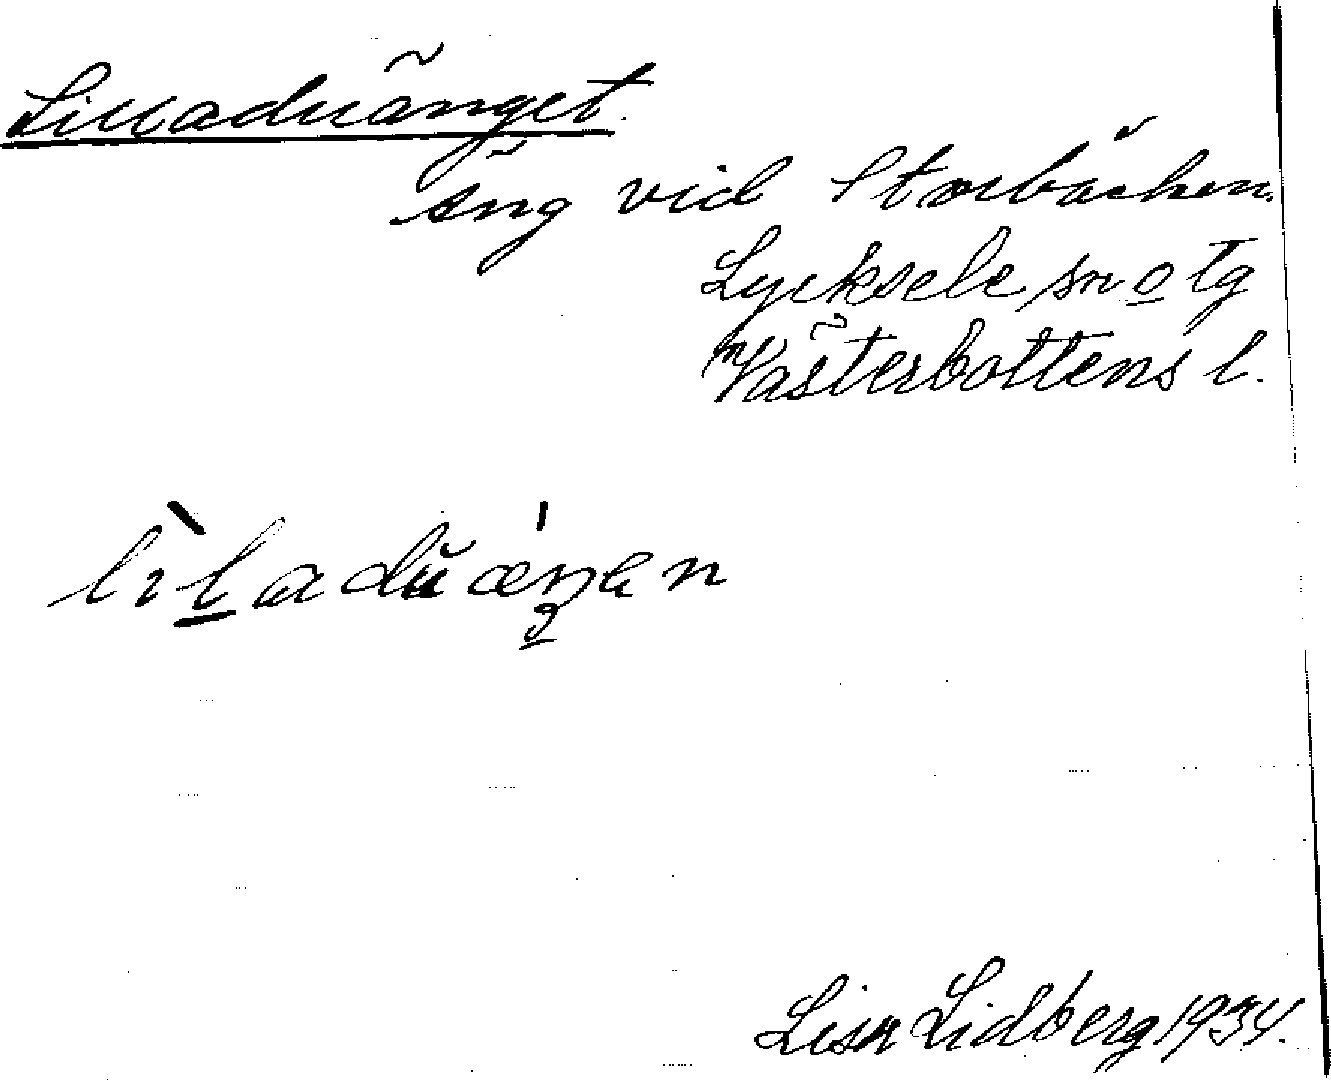 Lilladuänget.
äng vid Storbäcken.
Lycksele sn o tg
Västerbottens l.
Lisa Lidberg 1934.